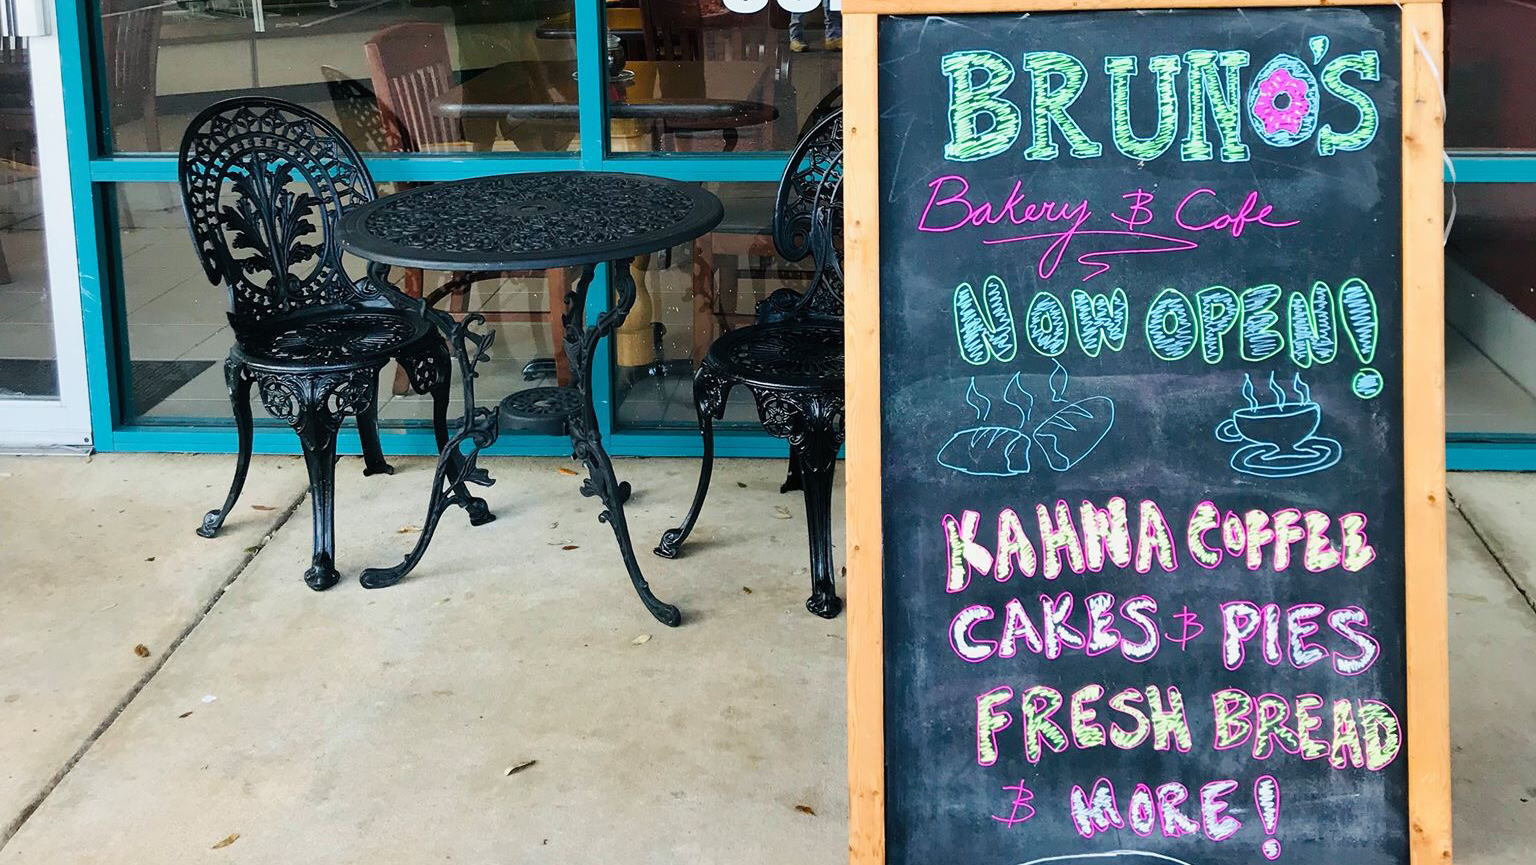 BRUNO'S
Bakery & Cafe
NOW OPEN!
KAHWA COFFEE
CAKES & PIES
FRESH BREAD
& MORE!